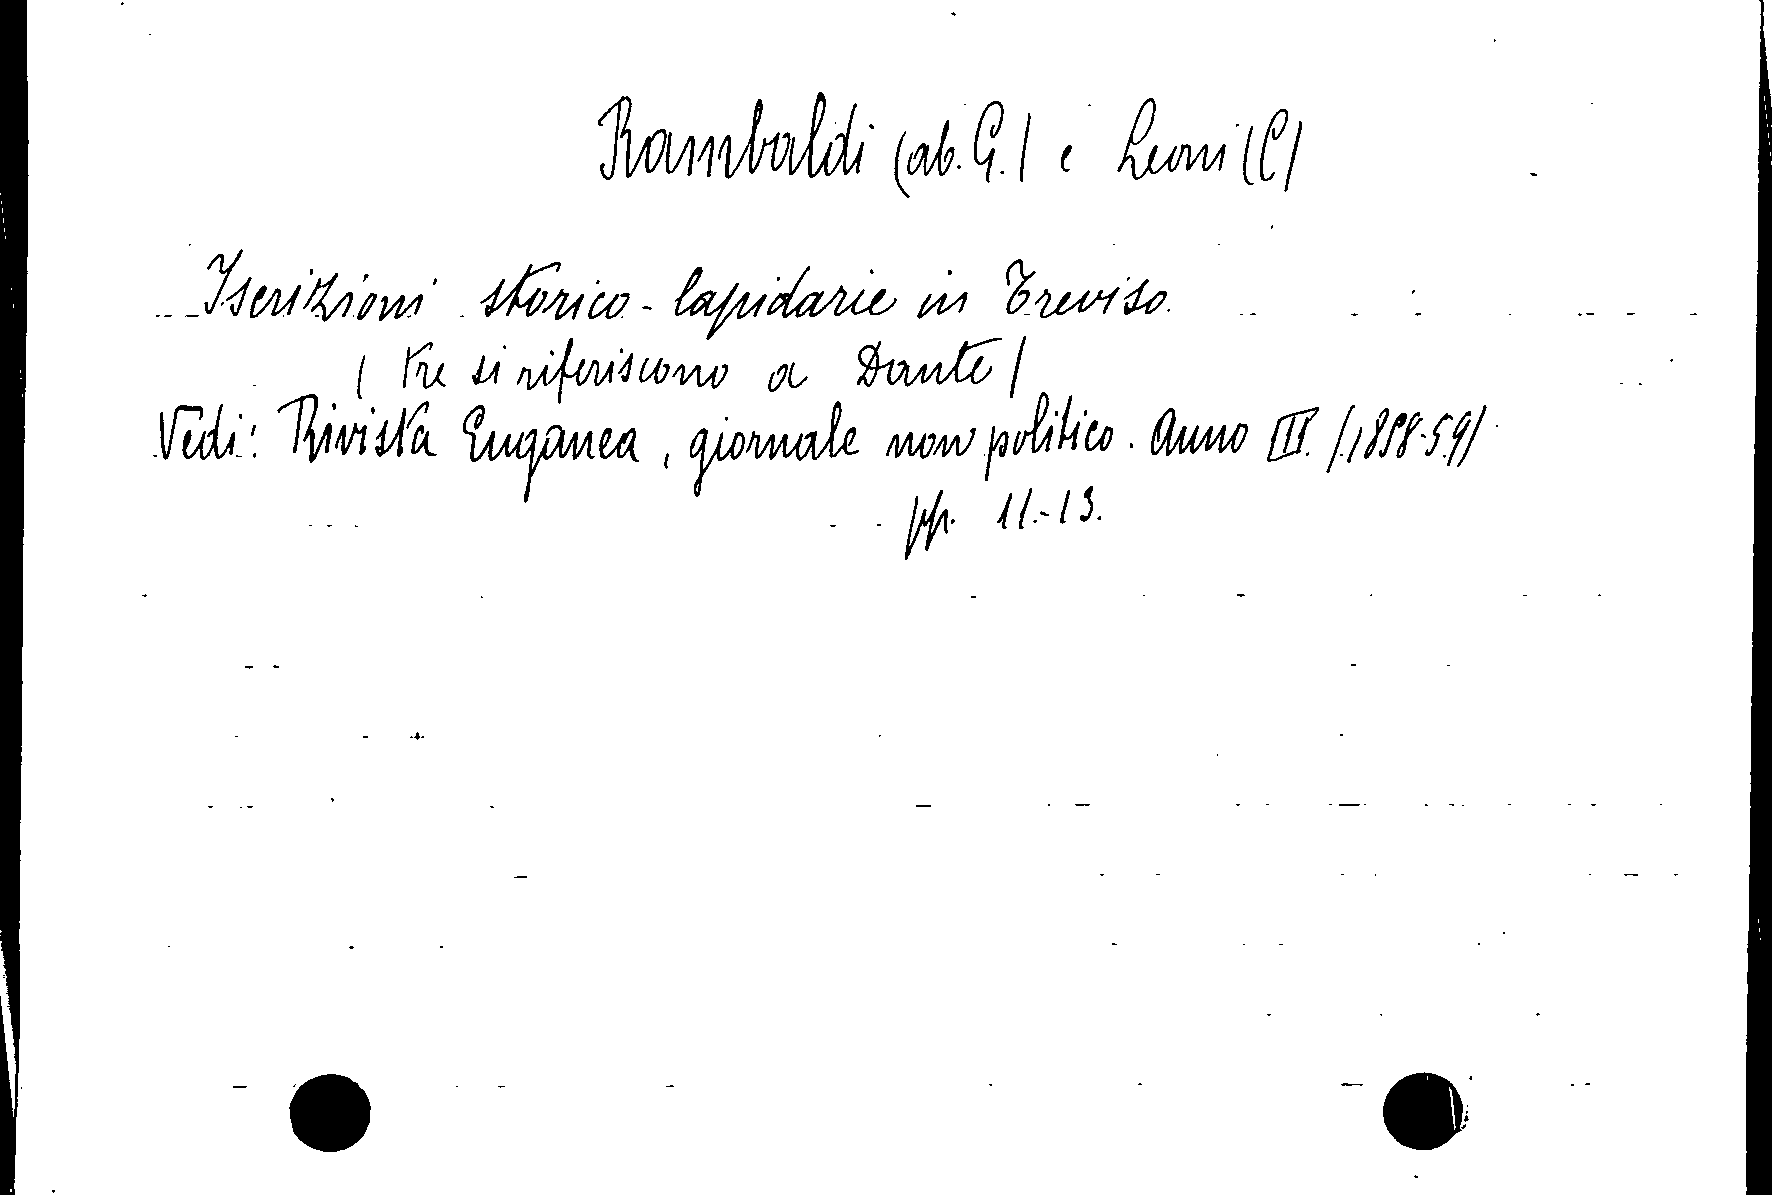 Rambaldi (ab. G.) e Leoni (C)
Iscrizioni storico-lapidarie in Treviso
(tre si riferiscono a Dante)
Vedi: Rivista Euganea, giornale non politico. Anno III. (1858-59)
pp. 11.-13.